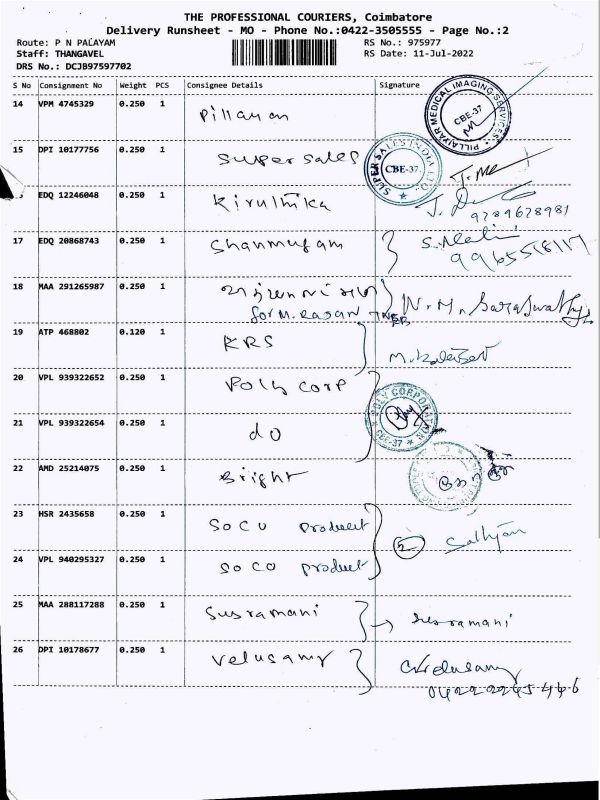 THE PROFESSIONAL COURIERS, Coimbatore
Delivery Runsheet - MO - Phone No.:0422-3505555 - Page No.:2
Route: P N PALAYAM
RS No.: 975977
Staff: THANGAVEL
RS Date: 11-Jul-2022
DRS No.: DCJB97597702
S No Consignment No Weight PCS Consignee Details Signature
14 VPM 4745329 0.250 1 Pillayan
PILLAIYAR MEDICAL IMAGING SERVICES CBE-37
15 DPI 10177756 0.250 1 Super Sales
SUPER SALES INDIA LTD. CBE-37
EDQ 12246048 0.250 1 Kiruthika
9789678981
17 EDQ 20868743 0.250 1 Shanmugam
18 MAA 291265987 0.250 1
for M. Rasan TNEB N. M. Saraswathy
19 ATP 468802 0.120 1 KRS
20 VPL 939322652 0.250 1 Poly Corp
POLY CORPORATION CBE-37
21 VPL 939322654 0.250 1 do
22 AMD 25214075 0.250 1 Bright
23 HSR 2435658 0.250 1 SOCO Product
2 Sathyan
24 VPL 940295327 0.250 1 SOCO product
25 MAA 288117288 0.250 1 Susramani
26 DPI 10178677 0.250 1 Velusamy